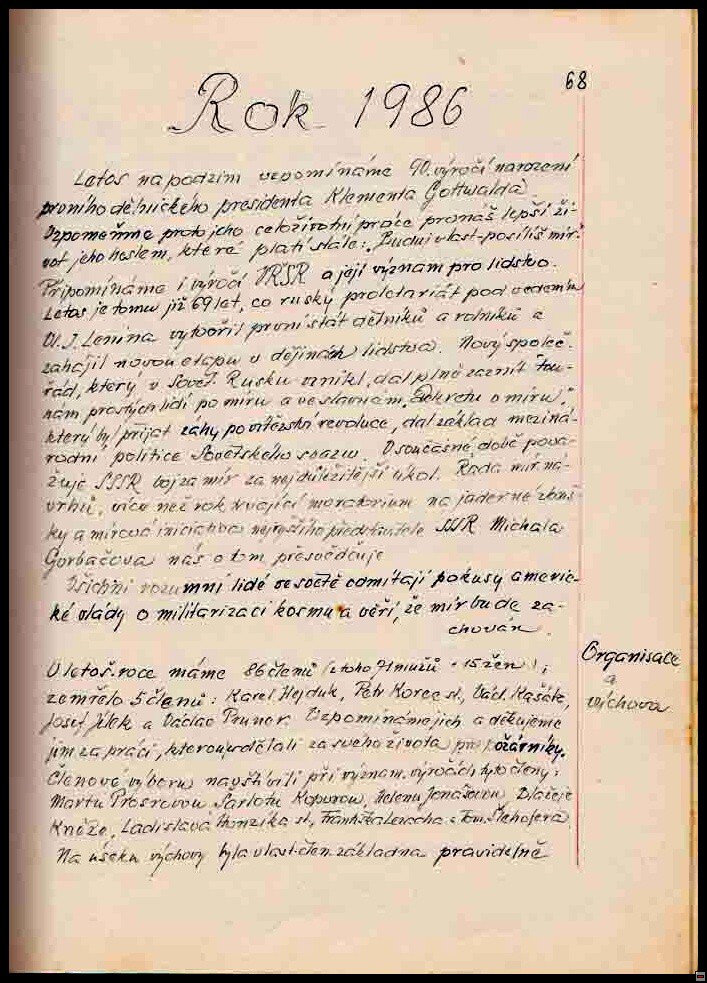 68
Rok 1986
Letos na podzim vzpomínáme 90. výročí narození
prvního dělnického presidenta Klementa Gottwalda.
Vzpomeňme proto jeho celoživotní práce pro náš lepší ži-
vot jeho heslem, které platí stále: „Buduj vlast-posílíš mír."
Připomínáme i výročí VŘSR a její význam pro lidstvo.
Letos je tomu již 69 let, co ruský proletariát pod vedením
V. I. Lenina vytvořil první stát dělníků a rolníků a
zahájil novou etapu v dějinách lidstva. Nový společ-
řád, který v Sovět. Rusku vznikl, dal plně zaznít tou-
hám prostých lidí po míru a ve slavném „Dekretu o míru",
který byl přijat záhy po vítězství revoluce, dal základ meziná-
rodní politice Sovětského svazu. V současné době pova-
žuje SSSR boj za mír za nejdůležitější úkol. Řada mír. ná-
vrhů, více než rok trvající moratorium na jaderné zkouš-
ky a mírová iniciativa nejvyššího představitele SSSR Michala
Gorbačova nás o tom přesvědčuje
Všichni rozumní lidé ve světě odmítají pokusy americ-
ké vlády o militarizaci kosmu a věří, že mír bude za-
chován.
Organisace
a
výchova
V letoš. roce máme 86 členů (z toho 71 mužů - 15 žen);
zemřelo 5 členů: Karel Hejduk, Petr Korec st., Václ. Kašák,
Josef Jílek a Václav Pruner. Vzpomínáme jich a děkujeme
jim za práci, kterou udělali za svého života pro požárníky.
Členové výboru navštívili při význam. výročích tyto členy:
Martu Šarlotu Helenu Jonášovou, Blažeje
Kněze, Ladislava st., Františka a Tom.
Na úseku výchovy byla vlast. člen. základna pravidelně